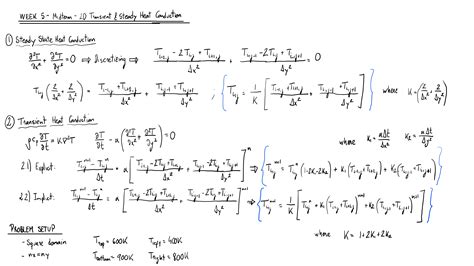 WEEK 5 - Midterm - 2D Transient & Steady Heat Conduction
① Steady State Heat Conduction
∂²T/∂x² + ∂²T/∂y² = 0 ⇒ Discretizing ⇒ (T_{i-1,j} - 2T_{i,j} + T_{i+1,j})/Δx² + (T_{i,j-1} - 2T_{i,j} + T_{i,j+1})/Δy² = 0
T_{i,j} (2/Δx² + 2/Δy²) = (T_{i-1,j} + T_{i+1,j})/Δx² + (T_{i,j-1} + T_{i,j+1})/Δy² , { T_{i,j} = 1/K [ (T_{i-1,j} + T_{i+1,j})/Δx² + (T_{i,j-1} + T_{i,j+1})/Δy² ] } where K = (2/Δx² + 2/Δy²)
② Transient Heat Conduction
ρCp ∂T/∂t = K∇²T ∂T/∂t - α(∂²T/∂x² + ∂²T/∂y²) = 0 where K₁ = αΔt/Δx² K₂ = αΔt/Δy²
2.1) Explicit: (T_{i,j}^{n+1} - T_{i,j}^{n})/Δt = α [ (T_{i-1,j} - 2T_{i,j} + T_{i+1,j})/Δx² + (T_{i,j-1} - 2T_{i,j} + T_{i,j+1})/Δy² ]^n ⇒ { T_{i,j}^{n+1} = T_{i,j}^{n} (1-2K₁-2K₂) + K₁(T_{i-1,j} + T_{i+1,j})^n + K₂(T_{i,j-1} + T_{i,j+1})^n }
2.2) Implicit: (T_{i,j}^{n+1} - T_{i,j}^{n})/Δt = α [ (T_{i-1,j} - 2T_{i,j} + T_{i+1,j})/Δx² + (T_{i,j-1} - 2T_{i,j} + T_{i,j+1})/Δy² ]^{n+1} ⇒ { T_{i,j}^{n+1} = 1/K [ T_{i,j}^n + K₁(T_{i-1,j} + T_{i+1,j})^{n+1} + K₂(T_{i,j-1} + T_{i,j+1})^{n+1} ] }
where K = 1+2K₁+2K₂
PROBLEM SETUP
- Square domain T_top = 600K T_left = 400K
- nx = ny T_bottom = 900K T_right = 800K